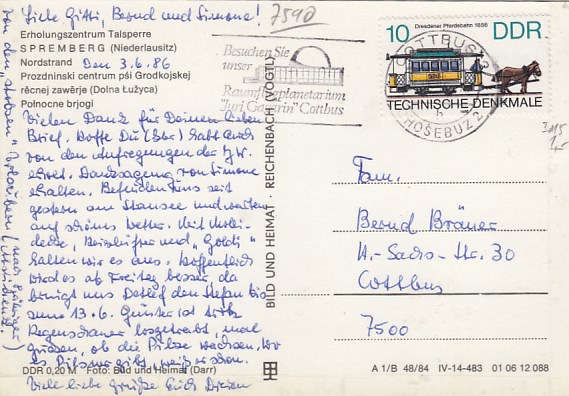 Liebe Gitti, Bernd und Simone!
7590
Erholungszentrum Talsperre
SPREMBERG (Niederlausitz)
Nordstrand Den 3.6.86
Prozdninski centrum pśi Grodkojskej
rěcnej zawěrje (Dolna Łužyca)
Połnocne brjogi
Vielen Dank für Deinen lieben
Brief. Hoffe Du (Ihr) habt Euch
von den Aufregungen der
erholt. Danksagung von Simone
erhalten. Befinden uns seit
gestern am Stausee und warten
auf schönes Wetter. Mit
decke, Heizlüfter und "Goldi"
halten wir es aus. Hoffentlich
wird es ab Freitag besser, da
bringt uns Detlef den Stefan bis
zum 13.6. Günter ist trotz
Regenschauer losgetrabt, mal
gucken, ob die Pilze wachsen. Wo
es Pilsner gibt, weiß er schon.
Viele liebe Grüße Euch
DDR 0,20 M Foto: Bild und Heimat (Darr)
von den
BILD UND HEIMAT · REICHENBACH (VOGTL)
Besuchen Sie
unser
Raumflugplanetarium
"Juri Gagarin" Cottbus
COTTBUS 2
CHOŚEBUZ 2
10 Dresdener Pferdebahn 1886 DDR
TECHNISCHE DENKMALE
Fam.
Bernd Bräuer
H.-Sachs-Str. 30
Cottbus
7500
A 1/B 48/84 IV-14-483 01 06 12 088